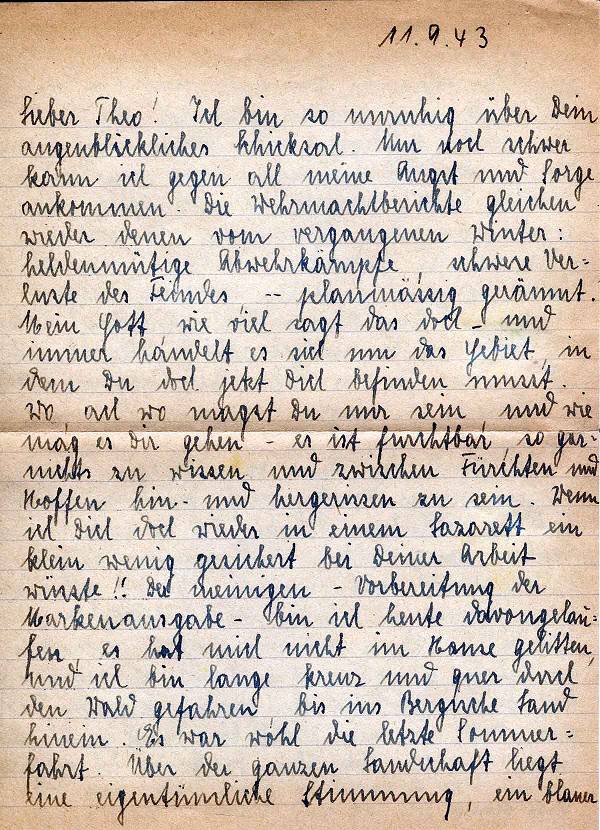 11.9.43
Lieber Theo! Ich bin so unruhig über Dein
augenblickliches Schicksal. Nur noch schwer
kann ich gegen all meine Angst und Sorge
ankommen. Die Wehrmachtberichte gleichen
wieder denen vom vergangenen Winter:
heldenmütige Abwehrkämpfe, schwere Ver=
luste des Feindes, -- planmässig geräumt.
Mein Gott wie viel sagt das doch - und
immer handelt es sich um das Gebiet, in
dem Du doch jetzt Dich befinden musst.
Wo ach wo magst Du nur sein und wie
mag es Dir gehen - es ist furchtbar, so gar-
nichts zu wissen und zwischen Fürchten und
Hoffen hin- und hergerissen zu sein. Wenn
ich Dich doch wieder in einem Lazarett ein
klein wenig gesichert bei Deiner Arbeit
wüsste!! Der meinigen - Vorbereitung der
Markenausgabe - bin ich heute davongelau-
fen, es hat mich nicht im Hause gelitten,
und ich bin lange kreuz und quer durch
den Wald gefahren bis ins Bergische Land
hinein. Es war wohl die letzte Sommer=
fahrt. Über der ganzen Landschaft liegt
eine eigentümliche Stimmung, ein blauer